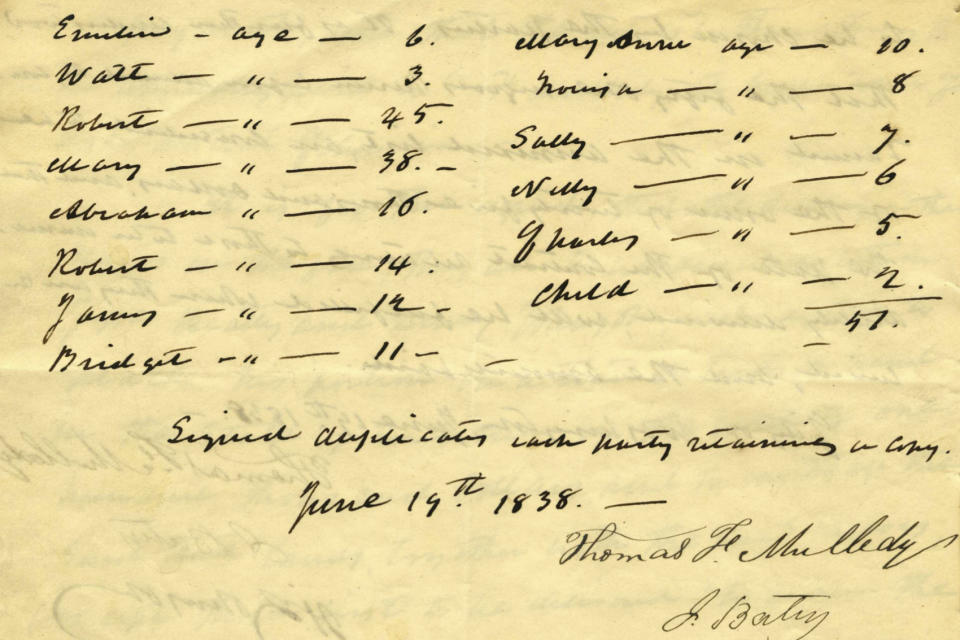 Emeline - age — 6.
Watt — " — 3.
Robert — " — 45.
Mary — " — 38. -
Abraham " — 16.
Robert — " — 14.
James — " — 12 -
Bridget - " — 11 -
Mary Anne age — 10.
Louisa — " — 8
Sally — " — 7.
Nelly — " — 6
Charles — " — 5.
Child — " — 2.
51.
Signed duplicates each party retaining a copy.
June 19th 1838. —
Thomas F. Mulledy
J. Batey